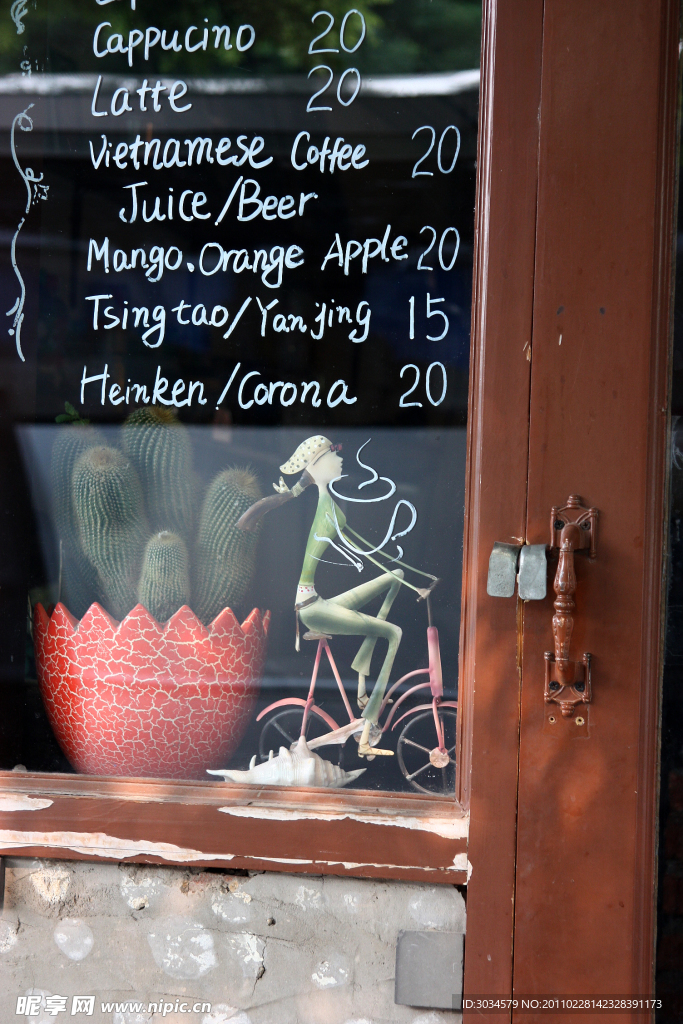 Cappucino 20
Latte 20
Vietnamese Coffee 20
Juice/Beer
Mango.Orange Apple 20
Tsingtao/Yanjing 15
Heinken/Corona 20
昵享网 www.nipic.cn
ID:3034579 NO:20110228142328391173